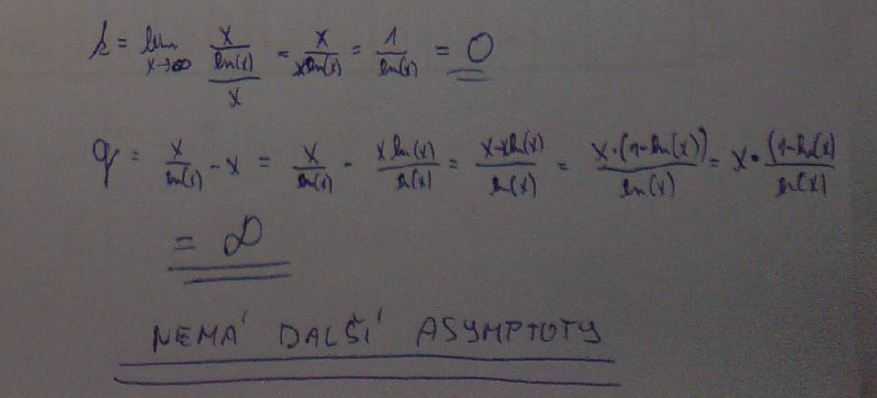 k = lim x→∞ x/ln(x)/x = x/x ln(x) = 1/ln(x) = 0
q = x/ln(x) - x = x/ln(x) - x ln(x)/ln(x) = x-x ln(x)/ln(x) = x·(1-ln(x))/ln(x) = x·(1-ln(x)/ln(x)
= ∞
NEMÁ DALŠÍ ASYMPTOTY